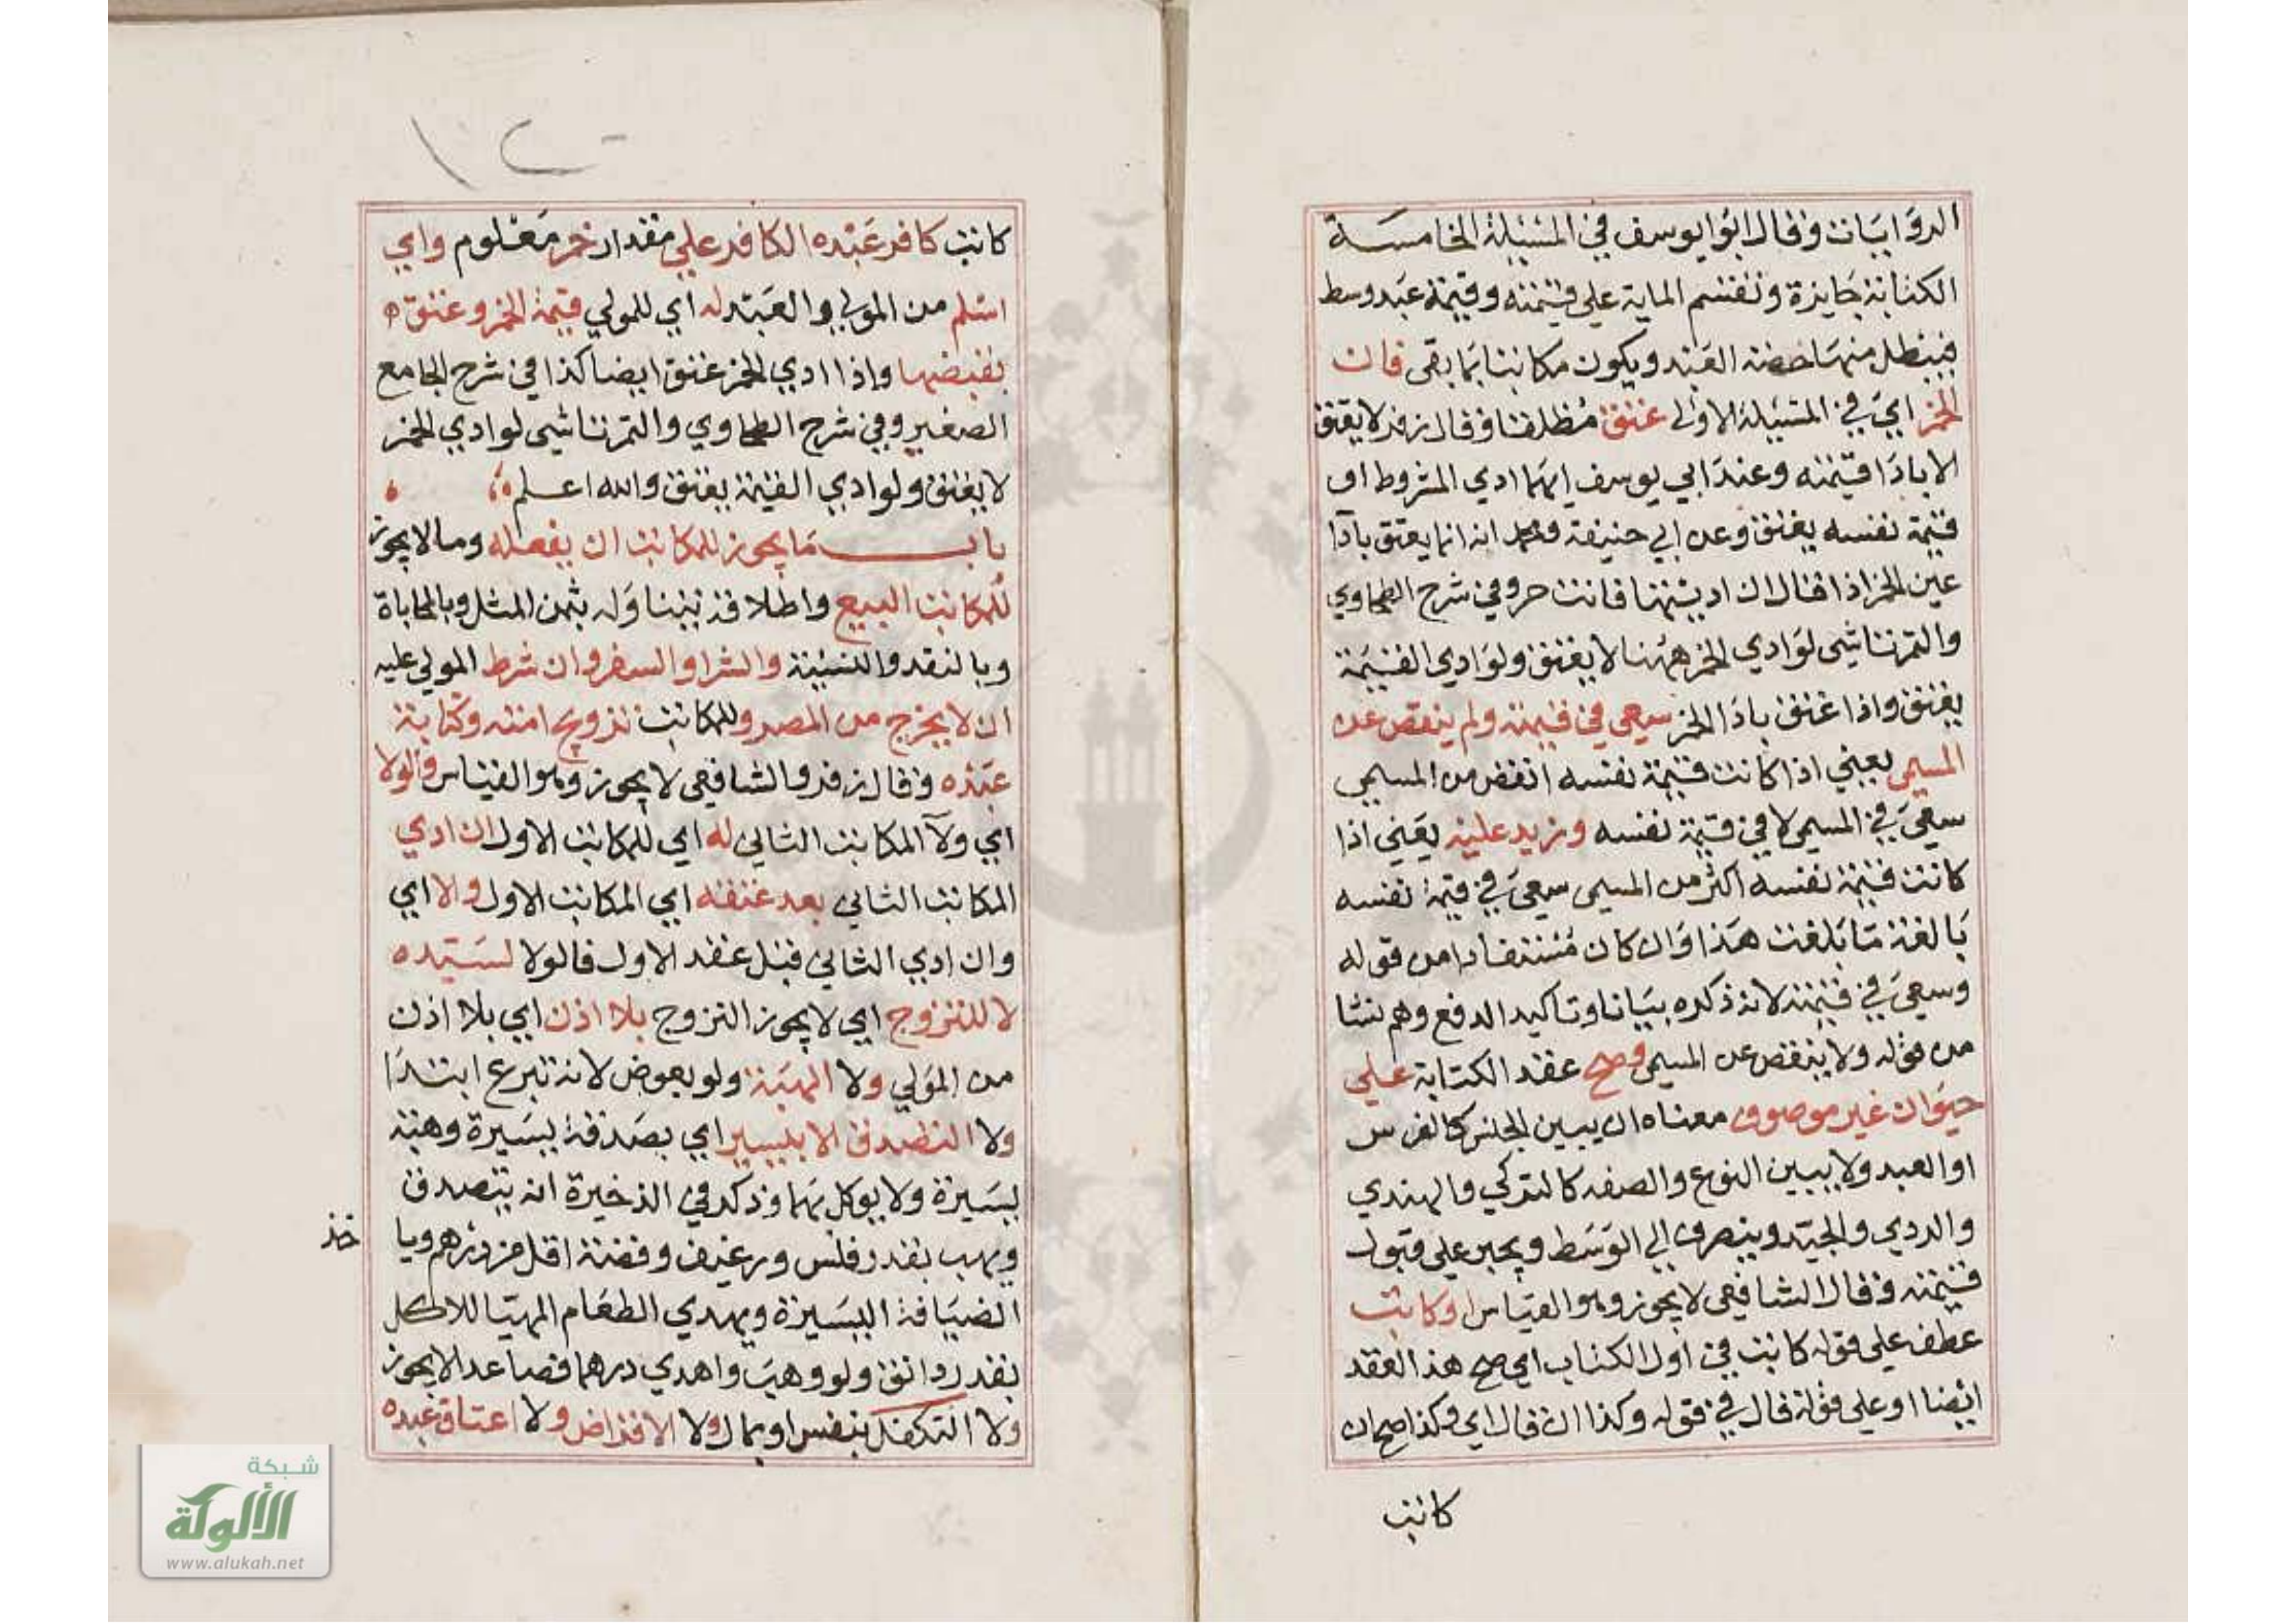 الروايات وقال ابو يوسف في المسئلة الخامسة
الكتابة جايزة وتقسم الماية على قيمته وقيمة عبد وسط
فيبطل منها حصة العبد ويكون مكاتبا بما بقى فان
الخمر اي في المسئلة الاولى عتق مطلقا وقال زفر لا يعتق
الا باداء قيمته وعند ابي يوسف ايهما ادي المشروط او
قيمة نفسه يعتق وعن ابي حنيفة ومحمد انه انما يعتق بادآ
عين الخمر اذا قال ان اديتها فانت حر وفي شرح الطحاوي
والتمرتاشى لو ادي الخمر ههنا لا يعتق ولو ادي القيمة
يعتق واذا عتق بادا الخمر سعي في قيمته ولم ينقص عن
المسمى يعني اذا كانت قيمة نفسه انقص من المسمى
سعى في المسمى لا في قيمة نفسه وزيد عليه يعني اذا
كانت قيمة نفسه اكثر من المسمى سعى في قيمة نفسه
بالغة ما بلغت هذا وان كان مستفادا من قوله
وسعى في قيمته لانه ذكره بيانا وتاكيد الدفع وهم نشا
من قوله ولا ينقص عن المسمى وصح عقد الكتابة على
حيوان غير موصوف معناه ان يبين الجنس كالفرس
او العبد ولا يبين النوع والصفه كالتركي والهندي
والردي والجيد وينصرف الى الوسط ويجبر على قبول
قيمته وقال الشافعى لا يجوز وهو القياس او كاتب
عطف على قوله كاتب في اول الكتاب اي صح هذا العقد
ايضا او على قوله قال في قوله وكذا ان قال اي وكذا صح ان
كاتب
كاتب كافر عبده الكافر على مقدار خمر معلوم واي
اسلم من المولى والعبد له اي للمولي قيمة الخمر وعتق
بقبضها واذا ادي الخمر عتق ايضا كذا في شرح الجامع
الصغير وفي شرح الطحاوي والتمرتاشى لو ادي الخمر
لا يعتق ولو ادي القيمة يعتق والله اعلم
باب ما يجوز للمكاتب ان يفعله وما لا يجوز
للمكاتب البيع واطلاقه يتناوله بثمن المثل وبالمحاباة
وبالنقد والنسيئة والشرا والسفر وان شرط المولي عليه
ان لا يخرج من المصر وللمكاتب تزويج امته وكتابة
عبده وقال زفر والشافعى لا يجوز وهو القياس والولا
اي ولآ المكاتب الثاني له اي للمكاتب الاول ان ادي
المكاتب الثاني بعد عتقه اي المكاتب الاول والا اي
وان ادي الثاني قبل عتقه الاول فالولا لسيده
لا للتزوج اي لا يجوز التزوج بلا اذن اي بلا اذن
من المولي ولا الهبة ولو بعوض لانه تبرع ابتداء
ولا التصدق الا بيسير اي بصدقة يسيرة وهبة
يسيرة ولا يوكل بهما وذكر في الذخيرة انه يتصدق
ويهب بقدر فلس ورغيف وفضة اقل من درهم ويا
خذ
الضيافة اليسيرة ويهدي الطعام المهيا للاكل
بقدر دانق ولو وهب واهدي درهما فصاعدا لا يجوز
ولا التكفل بنفس او بمال ولا الاقراض ولا اعتاق عبده
شبكة
الألوكة
www.alukah.net